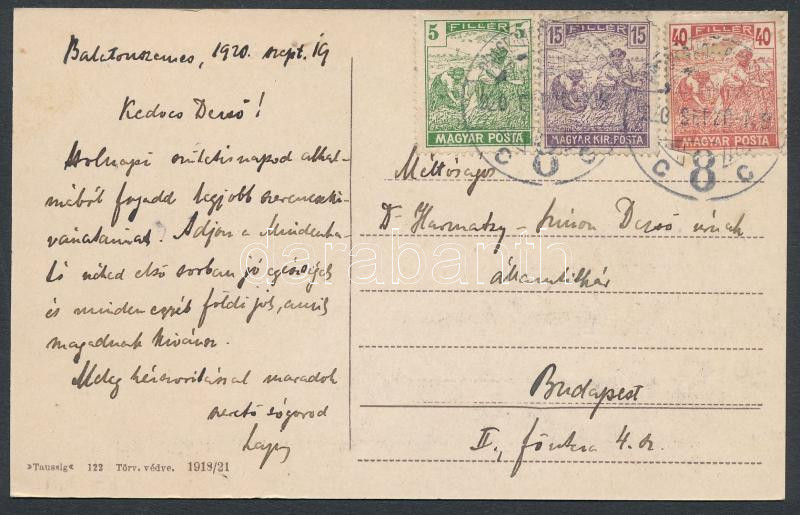 Balatonszemes, 1920. szept. 19
Kedves Dezső!
Holnapi születésnapod alkal-
mából fogadd legjobb szerencseki-
vánataimat. Adjon a Mindenha-
tó néked első sorban jó egészséget
és minden egyéb földi jót, amit
magadnak kivánsz.
Meleg kézszorítással maradok
szerető sógorod
Lajos
»Taussig« 122 Törv. védve. 1918/21
5 FILLÉR 5
MAGYAR POSTA
15 FILLÉR 15
MAGYAR KIR. POSTA
40 FILLÉR 40
MAGYAR POSTA
C 8 C
C 8 C
Méltóságos
Dr Harmatzy-Simon Dezső úrnak
államtitkár
Budapest
II., fő utca 4. sz.
darabanth